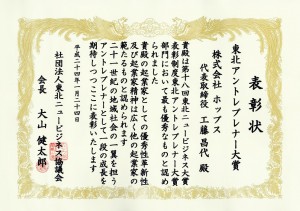 表彰状
東北アントレプレナー大賞
株式会社 ホップス
代表取締役 工藤昌代 殿
貴殿は第十八回東北ニュービジネス大賞
表彰制度東北アントレプレナー大賞
部門において最も優秀なものと認め
られました
貴殿の起業家としての優秀性革新性
及び起業家精神は広く他の起業家の
範たるものと認められます
二十一世紀の地域社会の一翼を担う
アントレプレナーとして一段の成長を
期待しつつここに表彰いたします
平成二十四年一月二十四日
社団法人東北ニュービジネス協議会
会長 大山健太郎